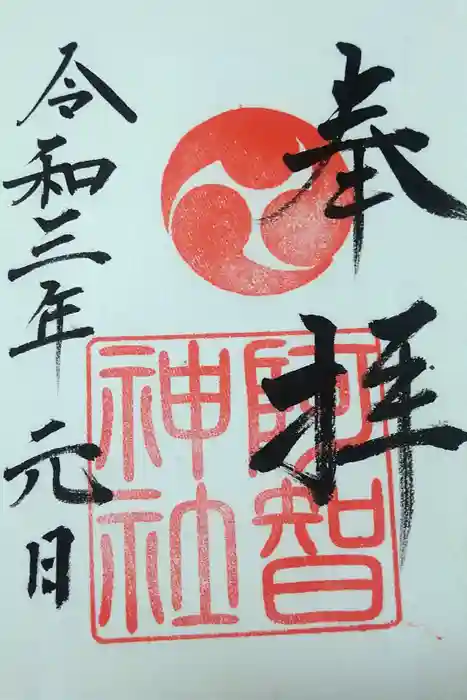 奉拝
阿智
神社
令和三年元日